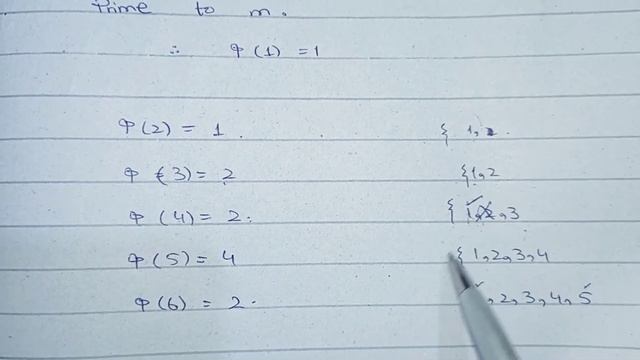 Prime to m.
∴ φ(1) = 1
φ(2) = 1. { 1, 2.
φ(3) = 2 { 1, 2
φ(4) = 2. { 1, 2, 3
φ(5) = 4 { 1, 2, 3, 4
φ(6) = 2. , 2, 3, 4, 5